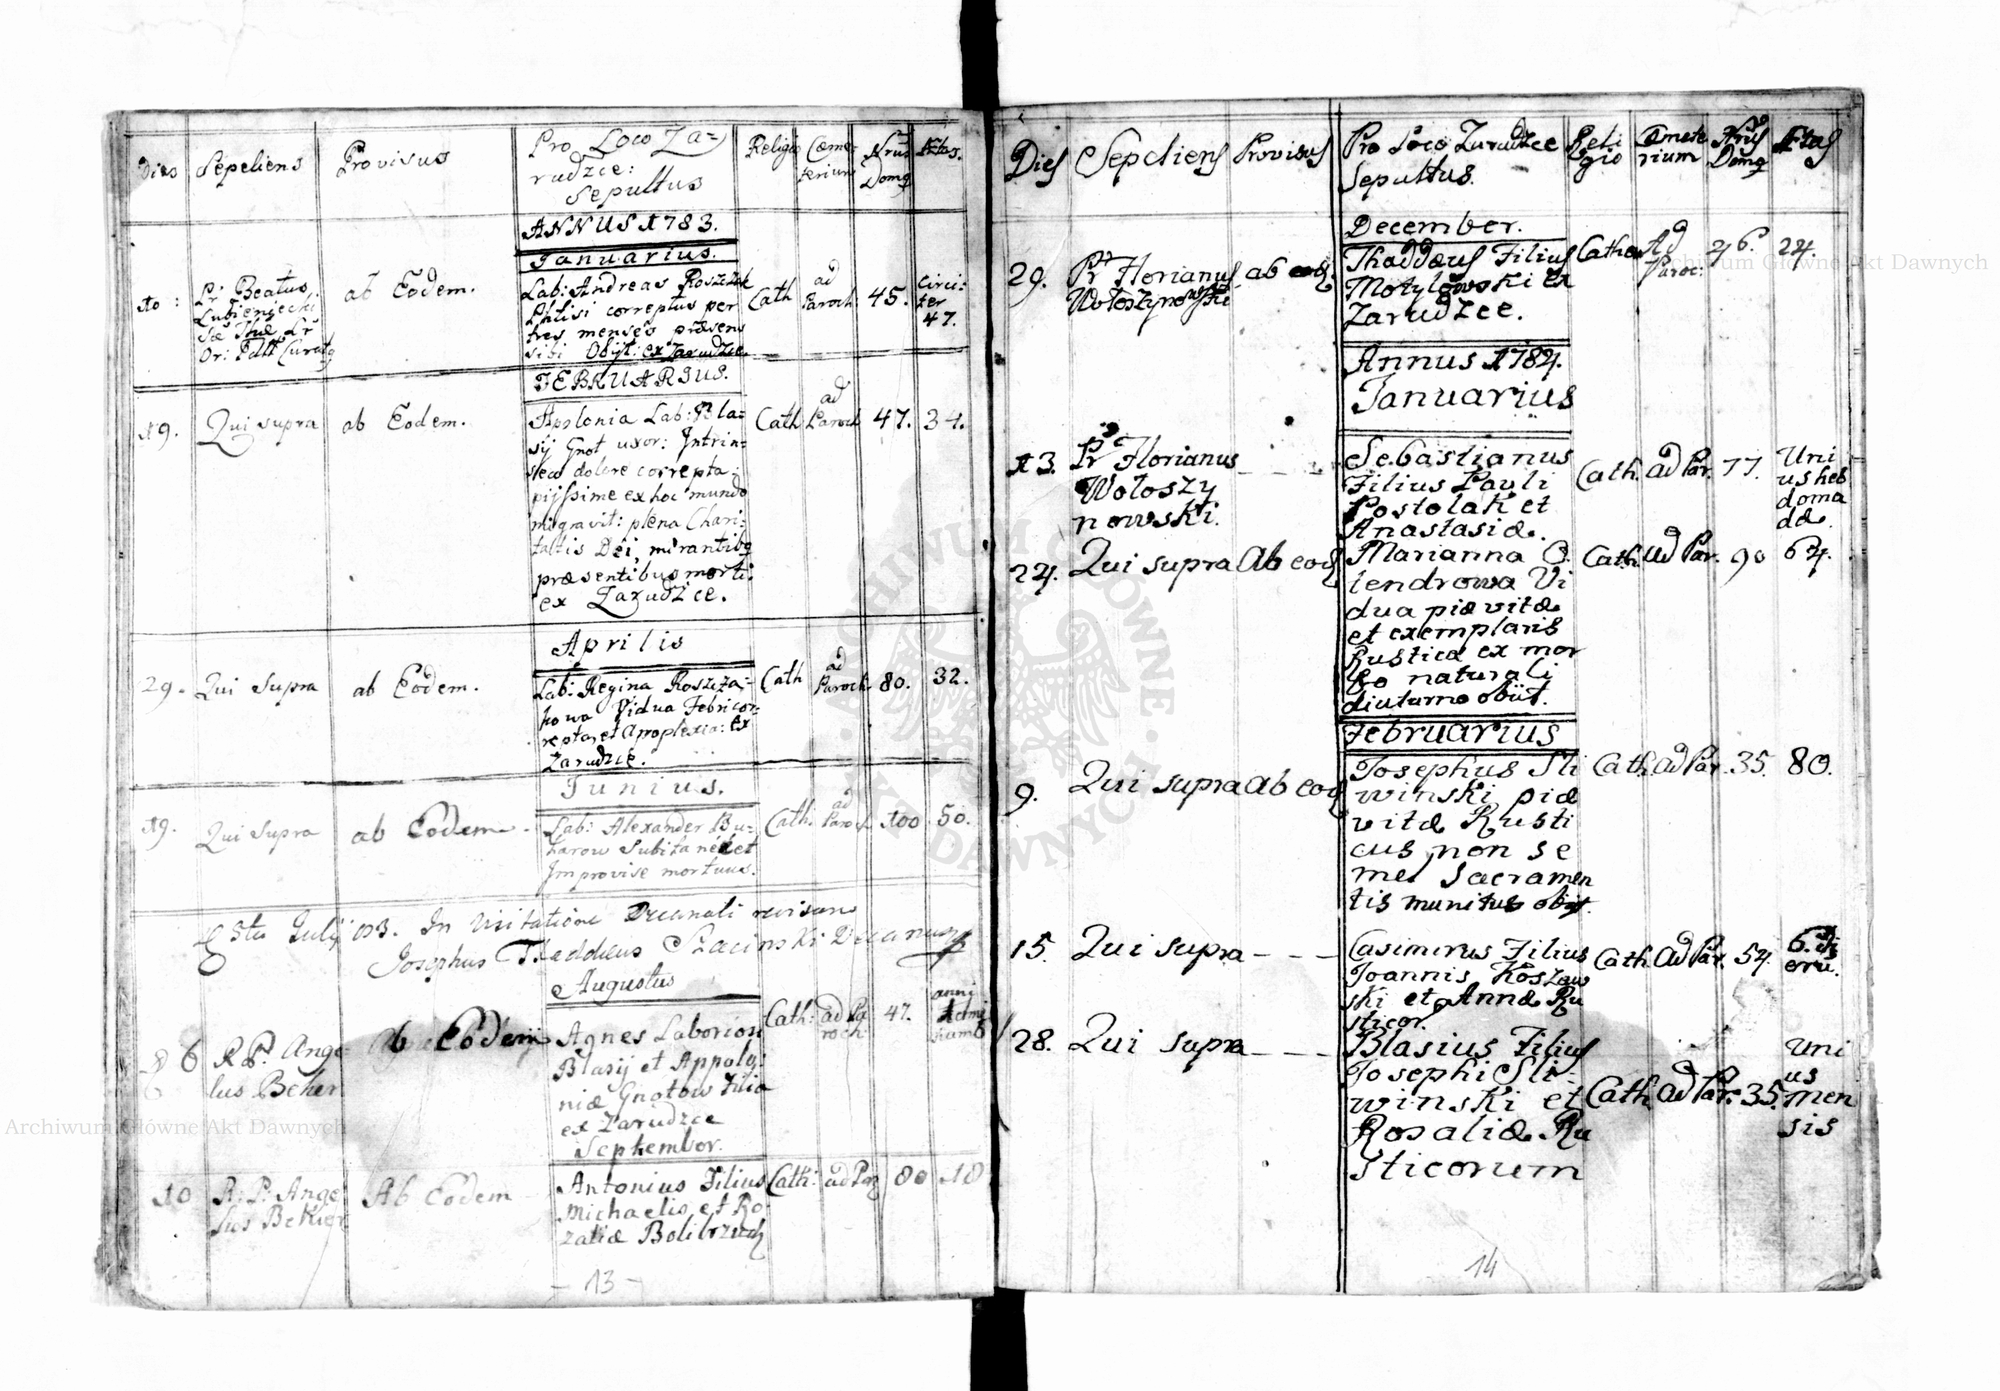 Dies
Sepeliens
Provisus
Pro Loco Za=
rudzce:
Sepultus
Religio
Cæme-
terium
Nrus
Domq
Ætas.
ANNUS 1783.
Januarius.
10:
Pr Beatus
Lubieniecki
Or:
ab Eodem.
Lab: Andreas Roszczak
Phtisi correptus per
tres menses præsens
sibi Obijt: ex Zarudzce
Cath
ad
Paroch
45.
Circi-
ter
47.
FEBRUARIUS.
19.
Qui supra
ab Eodem.
Apolonia Lab: Bla=
sij Gnot uxor: Intrin=
seco dolore correpta
pijssime ex hoc mundo
migravit: plena Chari=
tatis Dei, mirantibq
præsentibus morti
ex Zarudzce.
Cath
ad
Paroch
47.
34.
Aprilis
29.
Qui Supra
ab Eodem.
Lab: Regina Roszcza-
kowa Vidua Febri cor-
repta, et Apoplexia: ex
Zarudzce.
Cath
ad
Paroch
80.
32.
Junius.
19.
Qui Supra
ab Eodem
Lab: Alexander Bu-
karow Subitanée et
Improvise mortuus.
Cath.
ad
Paroch
100
50.
5ta Julij 783. In Visitatione Decanali
Josephus Thaddæus Szacinski Decanus
Augustus
6
R P. Ange-
lus Bekier
Ab Eodem
Agnes Laborios
Blasij et Appolo-
niæ Gnotow Filia
ex Zarudzce
Cath:
ad Pa
roch:
47.
anni
September.
10
R: P: Ange
lus Bekier
Ab Eodem
Antonius Filius
Michaelis et Ro
zaliæ Bolibrzuch
Cath:
ad Par
80
18
- 13 -
Dies
Sepeliens
Provisus
Pro Loco Zarudzce
Sepultus.
Reli
gio
Cæmete
rium
Nrus
Domq
Ætas
December.
29.
Pr Florianus
Wołoszynowski
ab eod.
Thaddæus Filius
Motylowski ex
Zarudzce.
Cathol
Ad
Paroc:
26.
24.
Annus 1784.
Januarius
13.
Pr Florianus
Wołoszy
nowski.
Sebastianus
Filius Pauli
Postolak et
Anastasiæ.
Cath.
ad Par.
77.
Uni
us heb
doma
dæ.
24.
Qui supra
Ab eod
Marianna O
lendrowa Vi
dua piæ vitæ
et exemplaris
Rustica ex mor
bo naturali
diuturno obiit.
Cath.
ad Par.
90
64.
Februarius
9.
Qui supra
ab eod
Josephus Sli
winski piæ
vitæ Rusti
cus non se
mel Sacramen
tis munitus obijt.
Cath.
ad Par.
35.
80.
15.
Qui supra
Casimirus Filius
Joannis Koszaw
ski et Annæ Ru
sticor.
Cath.
ad Par.
54.
6. di
eru.
28.
Qui supra
Blasius Filius
Josephi Sli-
winski et
Rosaliæ Ru
sticorum
Cath.
ad Par.
35.
Uni
us
men
sis
14
ARCHIWUM GŁÓWNE AKT DAWNYCH
Archiwum Główne Akt Dawnych
Archiwum Główne Akt Dawnych